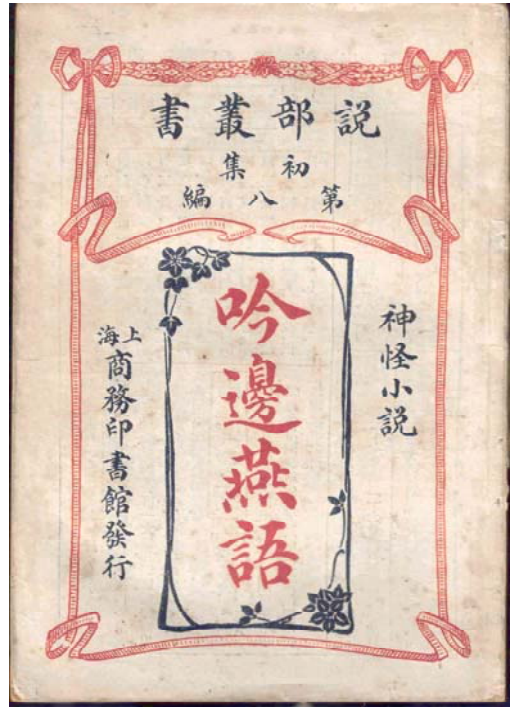 説部叢書
初集
第八編
神怪小説
吟邊燕語
上海
商務印書館發行